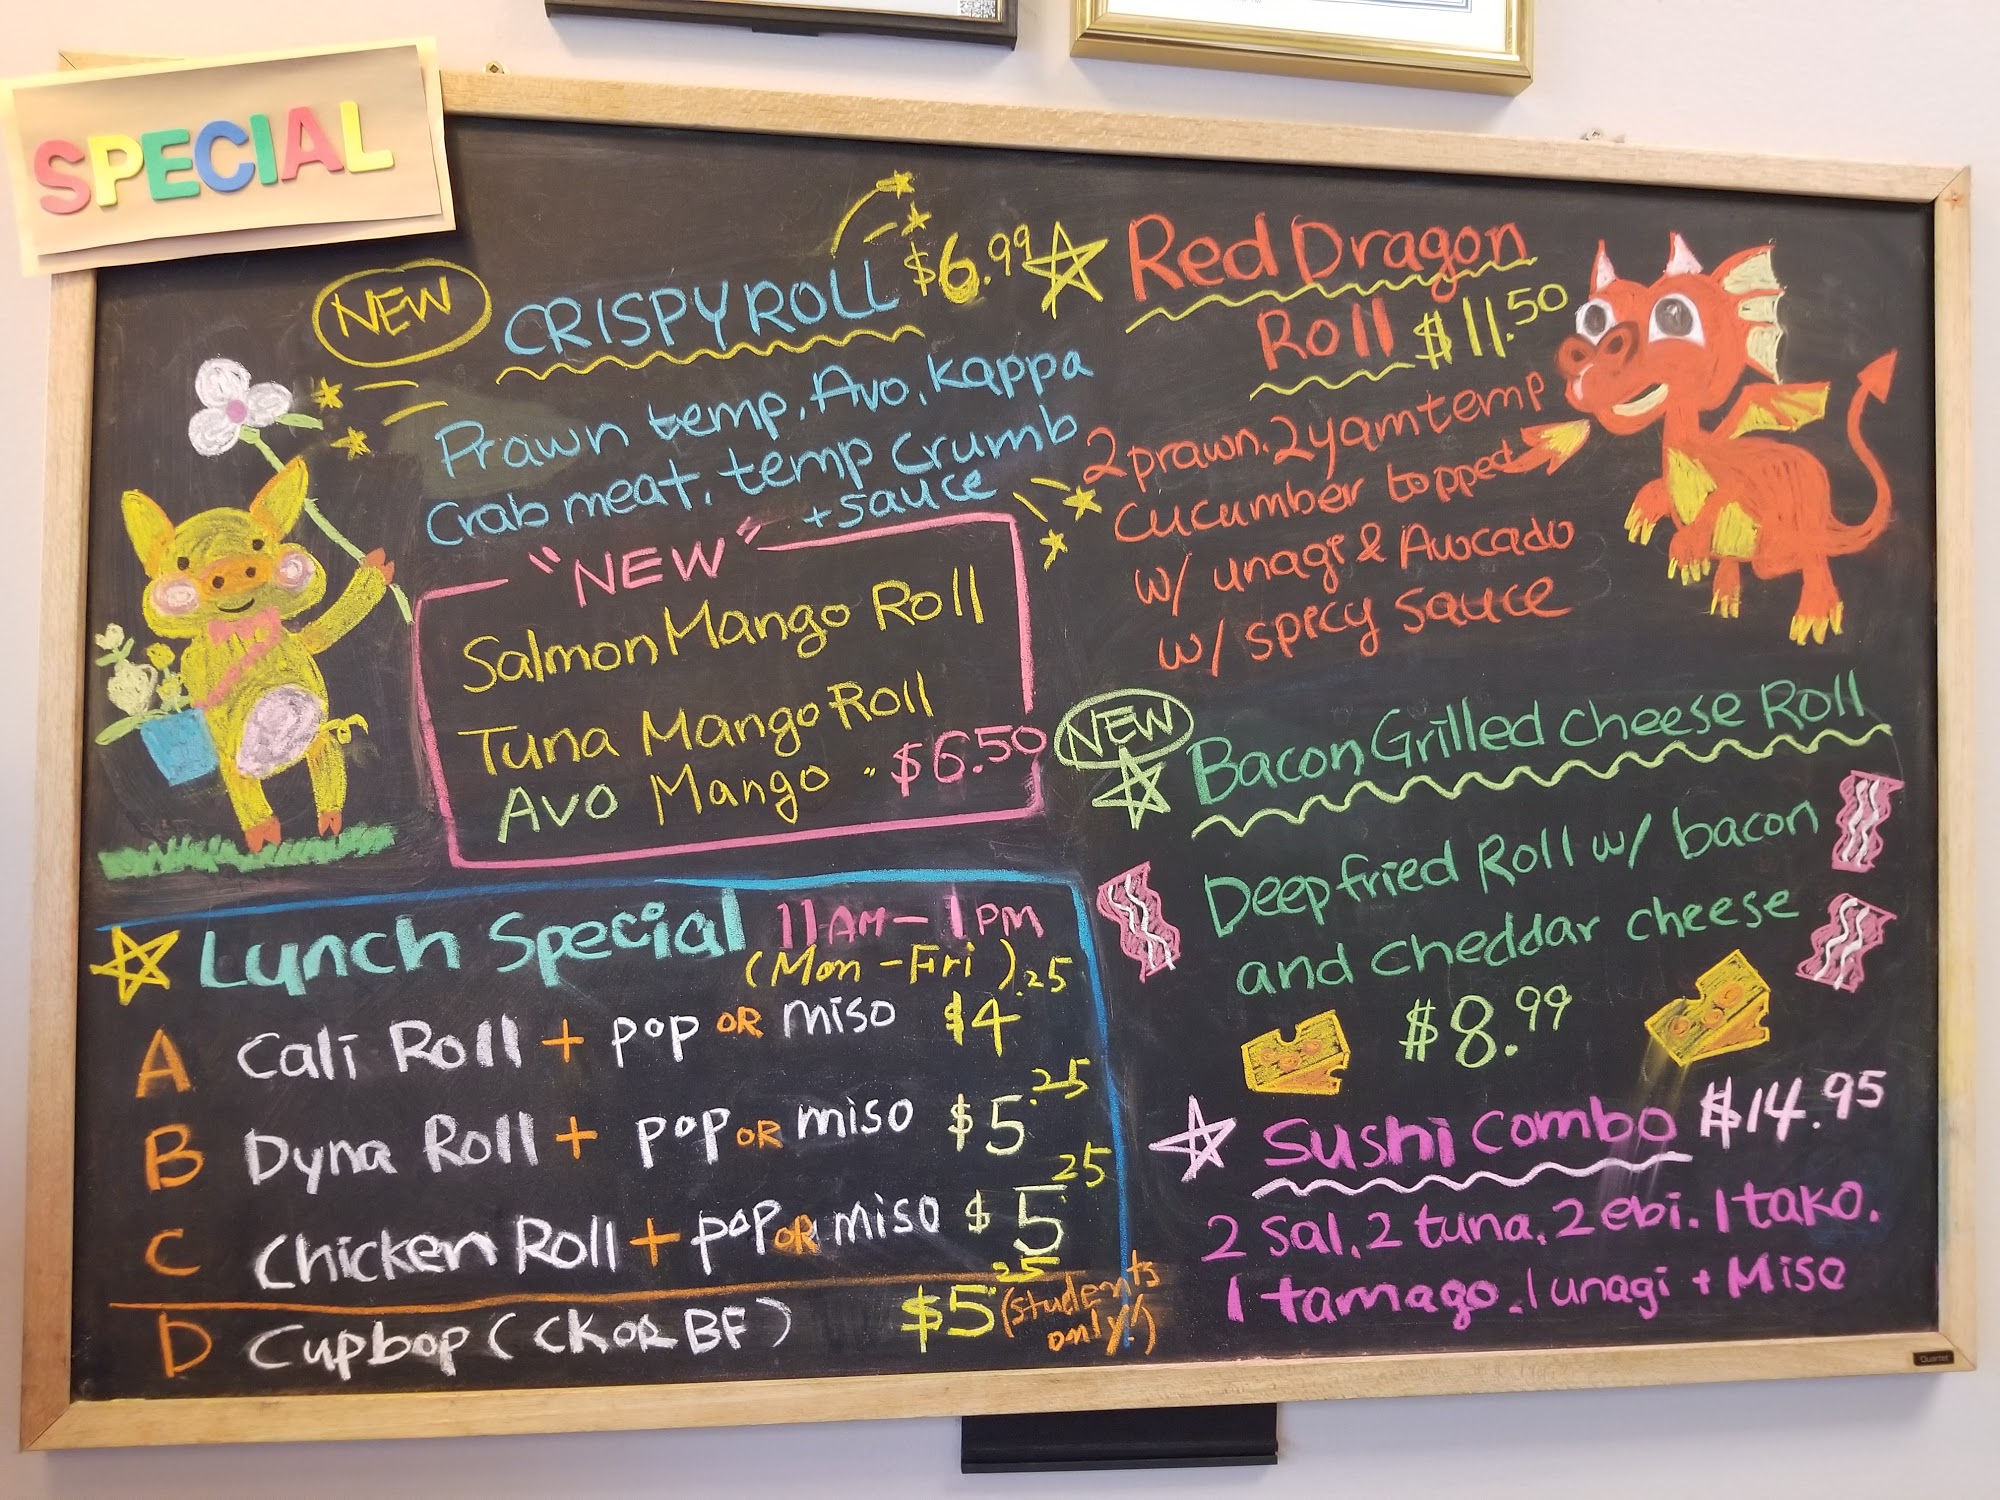 SPECIAL
NEW
CRISPY ROLL $6.99
Prawn temp, Avo, kappa
Crab meat, temp crumb
+ sauce
"NEW"
Salmon Mango Roll
Tuna Mango Roll
Avo Mango $6.50
Lunch Special 11AM - 1PM
(Mon - Fri)
A Cali Roll + pop OR miso $4.25
B Dyna Roll + pop OR miso $5.25
C Chicken Roll + pop OR miso $5.25
D Cupbop (CK OR BF) $5.25 (students
only!)
Red Dragon
Roll $11.50
2 prawn. 2 yam temp
cucumber topped
w/ unagi & Avocado
w/ spicy sauce
NEW
Bacon Grilled cheese Roll
Deep fried Roll w/ bacon
and cheddar cheese
$8.99
Sushi combo $14.95
2 sal, 2 tuna, 2 ebi. 1 tako.
1 tamago. 1 unagi + Miso
Quartet